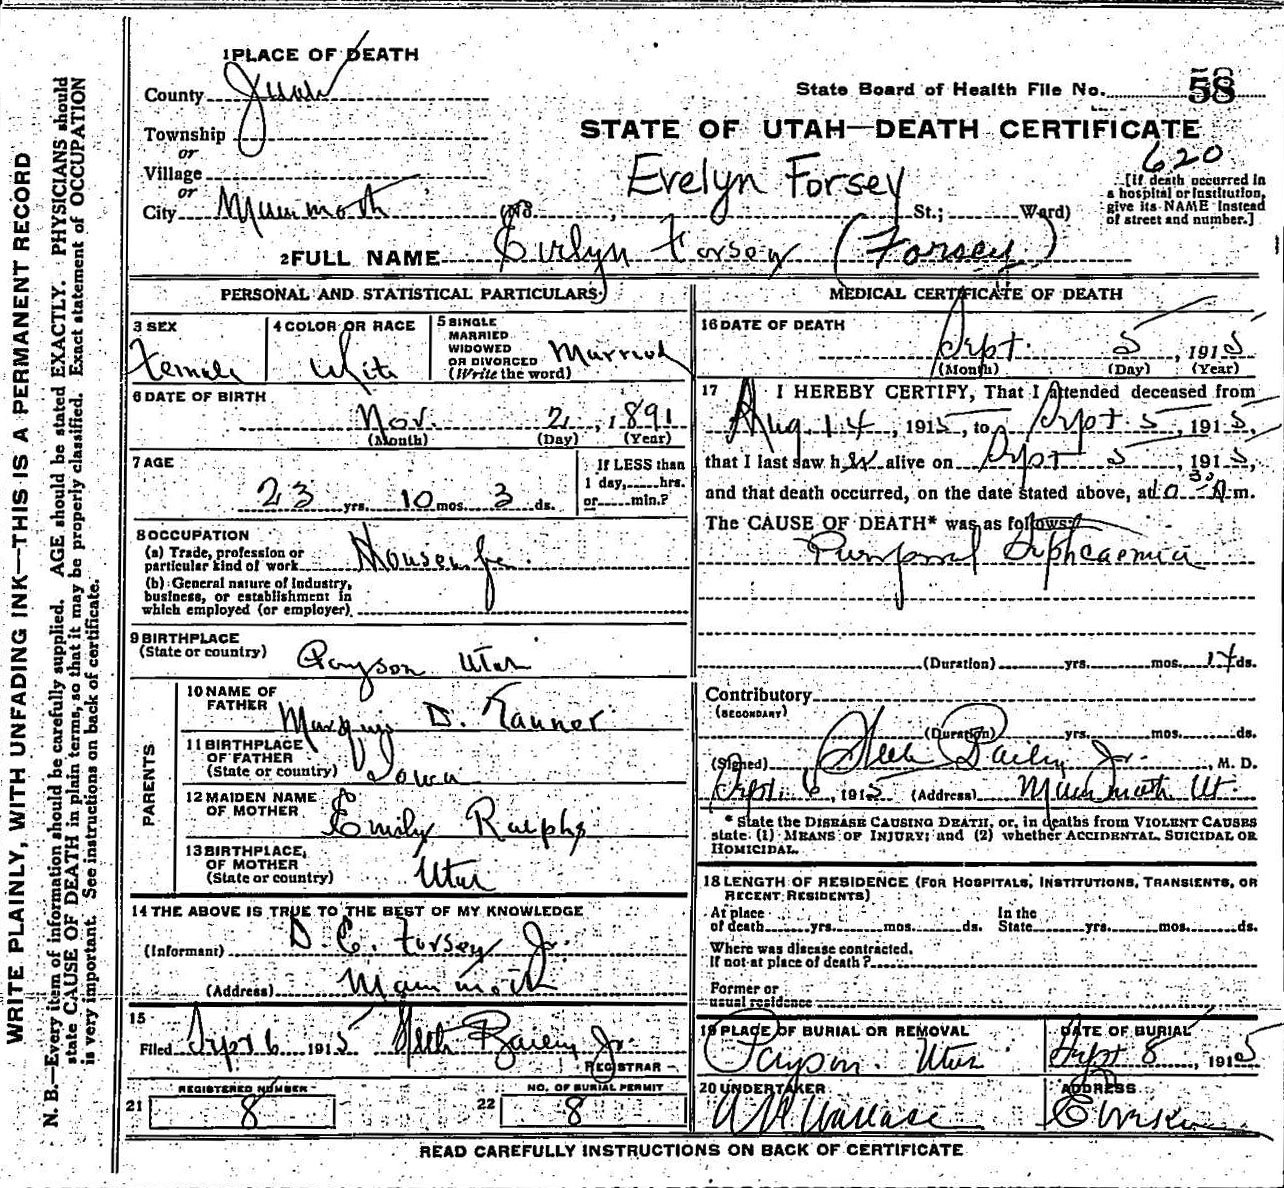 WRITE PLAINLY, WITH UNFADING INK—THIS IS A PERMANENT RECORD
N. B.—Every item of information should be carefully supplied. AGE should be stated EXACTLY. PHYSICIANS should
state CAUSE OF DEATH in plain terms, so that it may be properly classified. Exact statement of OCCUPATION
is very important. See instructions on back of certificate.
1 PLACE OF DEATH
County Juab
Township
or
Village
or
City Mammoth
State Board of Health File No. 58
STATE OF UTAH—DEATH CERTIFICATE
620
Evelyn Forsey
St.; Ward)
[If death occurred in
a hospital or institution,
give its NAME instead
of street and number.]
2 FULL NAME Evelyn Forsey (Forsey)
PERSONAL AND STATISTICAL PARTICULARS
3 SEX
Female
4 COLOR OR RACE
White
5 SINGLE
MARRIED
WIDOWED
OR DIVORCED
(Write the word)
Married
6 DATE OF BIRTH
Nov. 2, 1891
(Month) (Day) (Year)
7 AGE
23 yrs. 10 mos. 3 ds.
If LESS than
1 day, hrs.
or min.?
8 OCCUPATION
(a) Trade, profession or
particular kind of work Housewife
(b) General nature of Industry,
business, or establishment in
which employed (or employer)
9 BIRTHPLACE
(State or country) Payson Utah
PARENTS
10 NAME OF
FATHER Marquis D. Tanner
11 BIRTHPLACE
OF FATHER
(State or country) Iowa
12 MAIDEN NAME
OF MOTHER Emily Ralphs
13 BIRTHPLACE,
OF MOTHER
(State or country) Utah
14 THE ABOVE IS TRUE TO THE BEST OF MY KNOWLEDGE
(Informant) D. E. Forsey Jr.
(Address) Mammoth
15
Filed Sept 6 1915 Steele Bailey Jr.
REGISTRAR
REGISTERED NUMBER
21 8
NO. OF BURIAL PERMIT
22 8
MEDICAL CERTIFICATE OF DEATH
16 DATE OF DEATH
Sept. 5, 1915
(Month) (Day) (Year)
17 I HEREBY CERTIFY, That I attended deceased from
Aug. 14, 1915, to Sept. 5, 1915,
that I last saw her alive on Sept 5, 1915,
and that death occurred, on the date stated above, at 10 30 A m.
The CAUSE OF DEATH* was as follows:
Puerperal Septicaemia
(Duration) yrs. mos. 17 ds.
Contributory
(SECONDARY)
(Duration) yrs. mos. ds.
(Signed) Steele Bailey Jr., M. D.
Sept. 6, 1915 (Address) Mammoth Ut.
* State the DISEASE CAUSING DEATH, or, in deaths from VIOLENT CAUSES
state (1) MEANS OF INJURY; and (2) whether ACCIDENTAL, SUICIDAL OR
HOMICIDAL.
18 LENGTH OF RESIDENCE (FOR HOSPITALS, INSTITUTIONS, TRANSIENTS, OR
RECENT RESIDENTS)
At place
of death yrs. mos. ds.
In the
State yrs. mos. ds.
Where was disease contracted,
If not at place of death?
Former or
usual residence
19 PLACE OF BURIAL OR REMOVAL
Payson. Utah
DATE OF BURIAL
Sept 8, 1915
20 UNDERTAKER
Wallace
ADDRESS
Eureka
READ CAREFULLY INSTRUCTIONS ON BACK OF CERTIFICATE